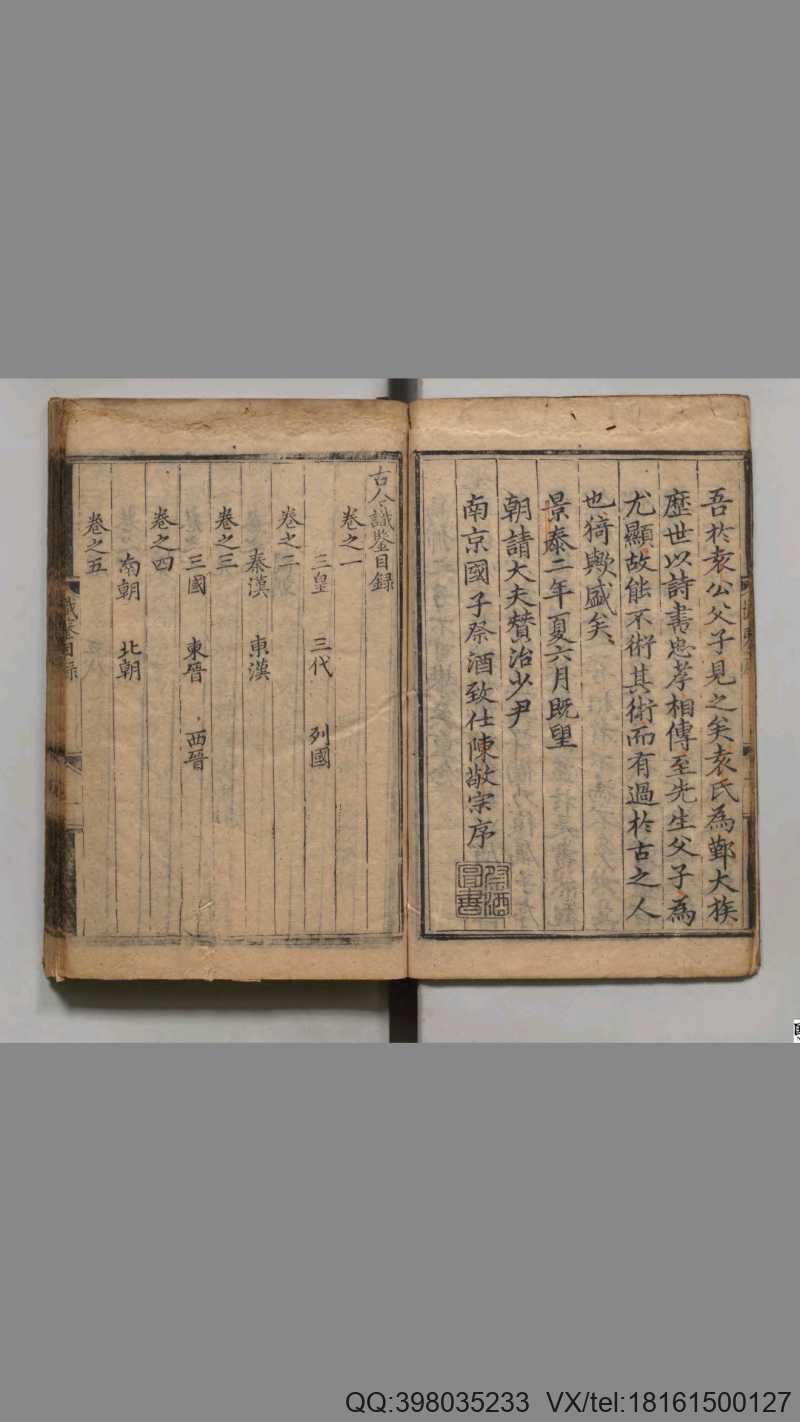 吾於袁公父子見之矣袁氏為鄞大族
歷世以詩書忠孝相傳至先生父子為
尤顯故能不術其術而有過於古之人
也猗歟盛矣
景泰二年夏六月既望
朝請大夫贊治少尹
南京國子祭酒致仕陳敬宗序
祭酒
圖書
古今識鑒目錄
卷之一
三皇 三代 列國
卷之二
秦漢 東漢
卷之三
三國 東晉 西晉
卷之四
南朝 北朝
卷之五
識鑒目錄
QQ:398035233 VX/tel:18161500127